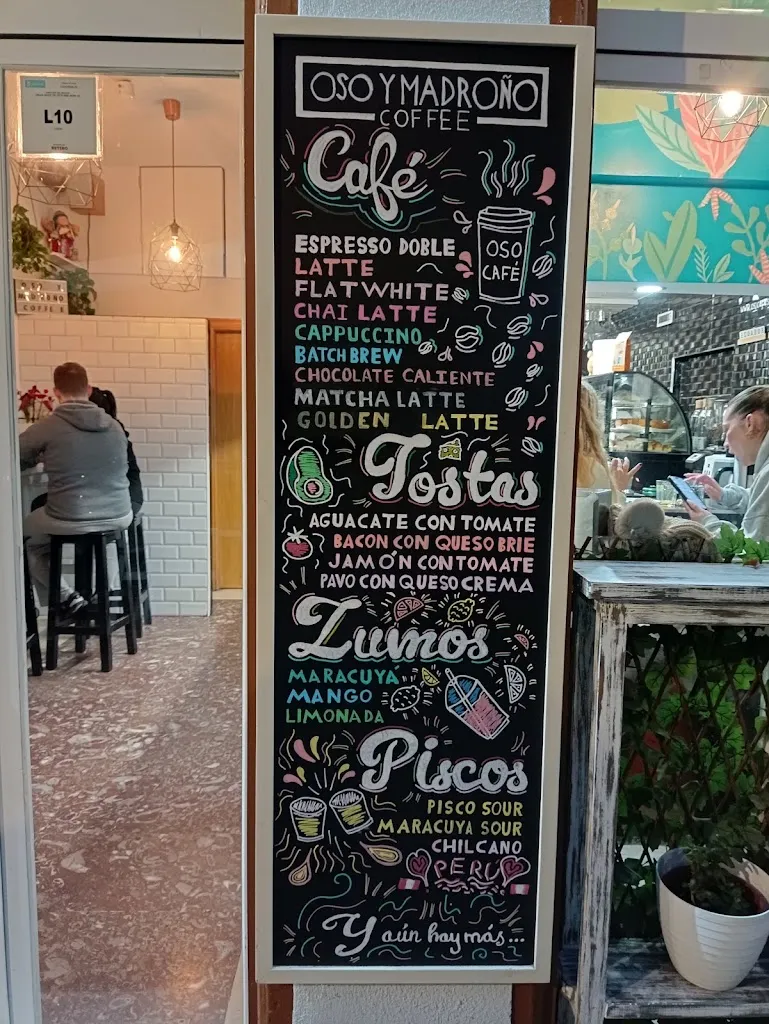 L10
OSO Y MADROÑO
COFFEE
Café
OSO
CAFÉ
ESPRESSO DOBLE
LATTE
FLAT WHITE
CHAI LATTE
CAPPUCCINO
BATCH BREW
CHOCOLATE CALIENTE
MATCHA LATTE
GOLDEN LATTE
Tostas
AGUACATE CON TOMATE
BACON CON QUESO BRIE
JAMÓN CON TOMATE
PAVO CON QUESO CREMA
Zumos
MARACUYA
MANGO
LIMONADA
Piscos
PISCO SOUR
MARACUYA SOUR
CHILCANO
PERÚ
Y aún hay más...